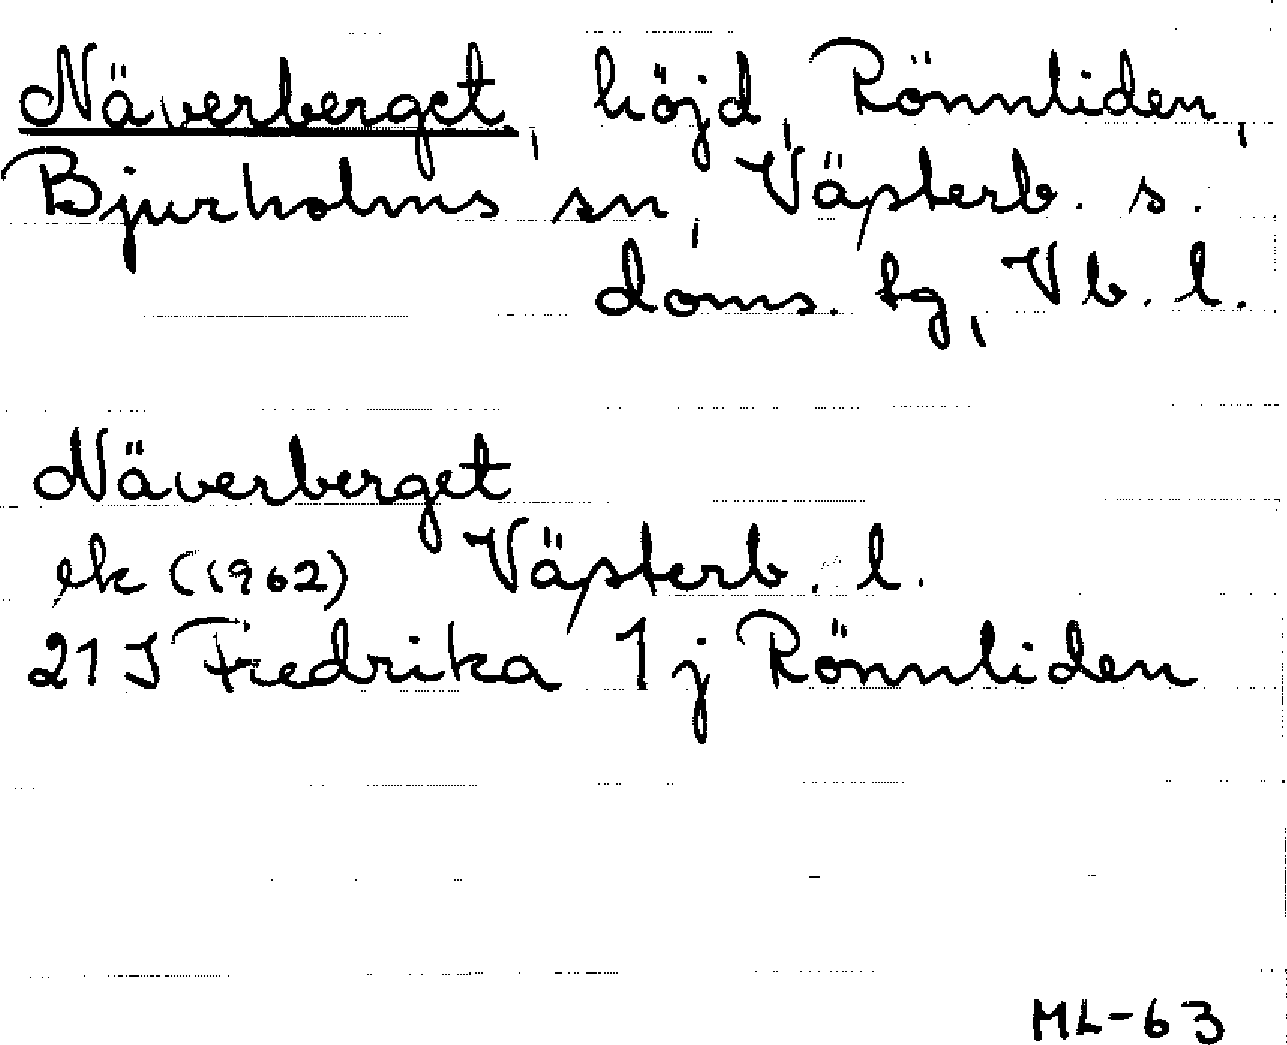 Näverberget, höjd, Rönnliden,
Bjurholms sn, Västerb. s.
doms. hg, Vb. l.
Näverberget
ek (1962) Västerb. l.
21 J Fredrika 1 j Rönnliden
ML-63